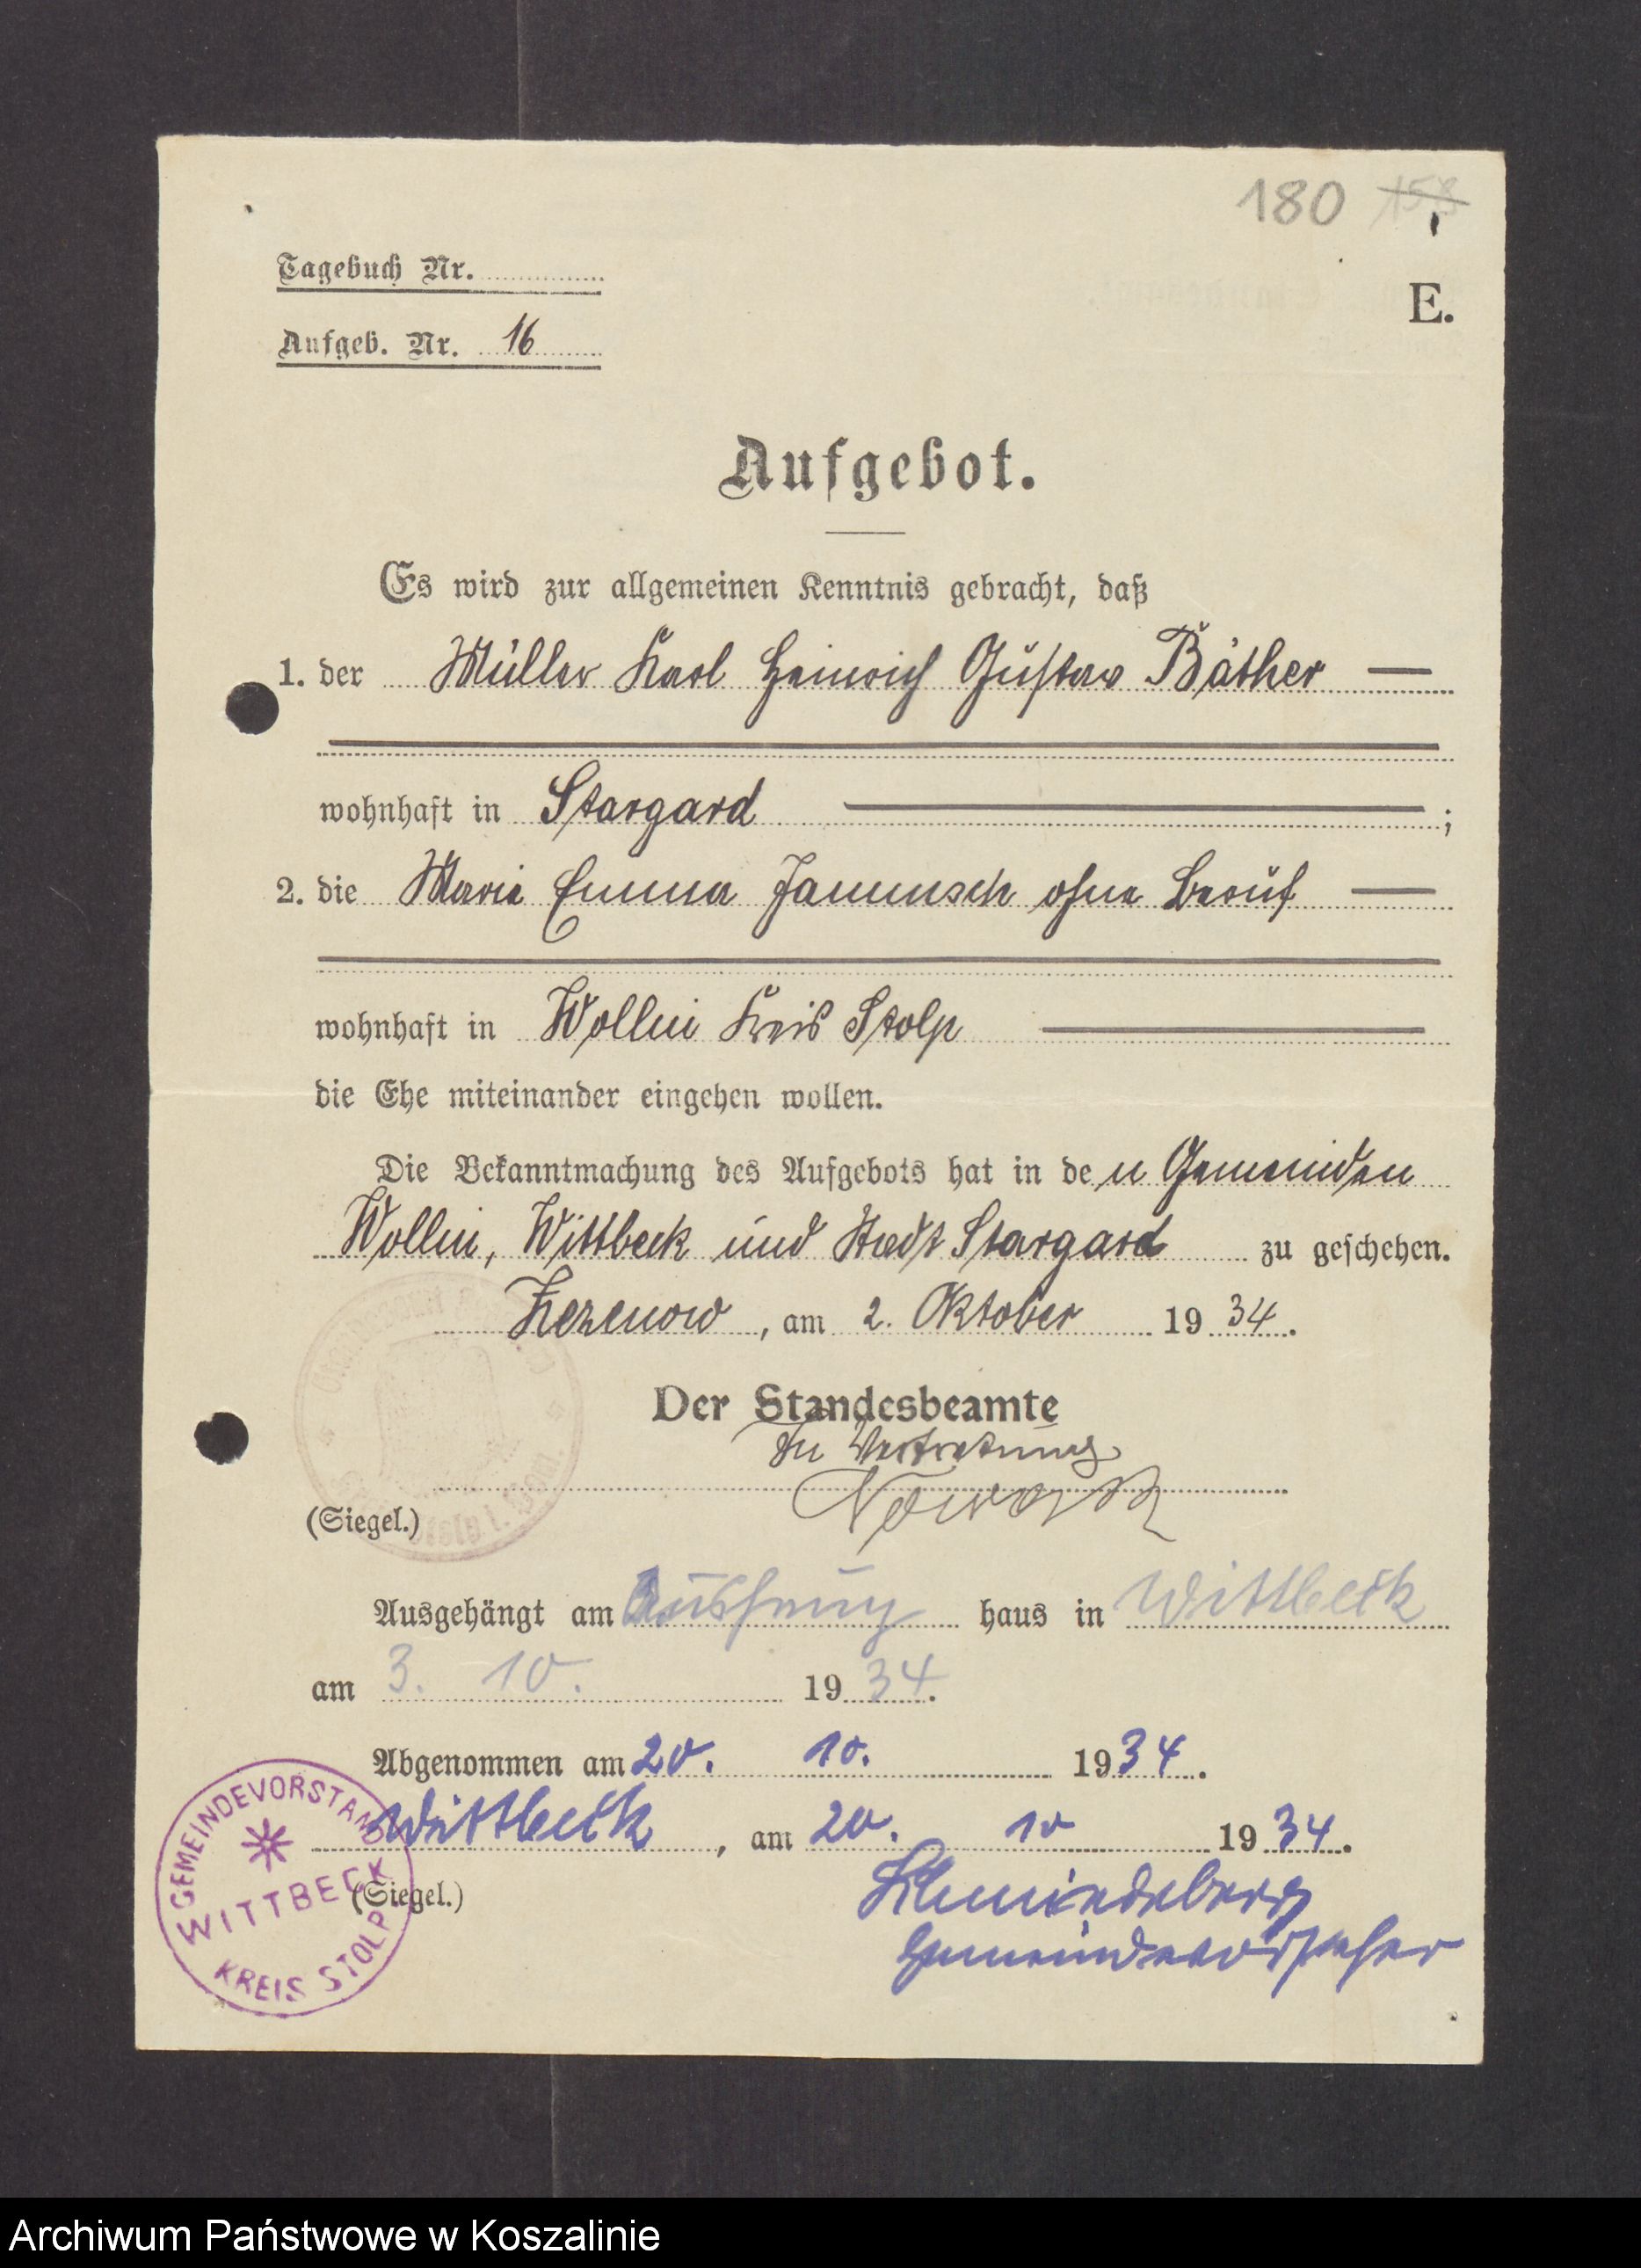 180 158
E.
Tagebuch Nr.
Aufgeb. Nr. 16
Aufgebot.
Es wird zur allgemeinen Kenntnis gebracht, daß
1. der Müller Karl Heinrich Gustav Bäther —
wohnhaft in Stargard ;
2. die Marie Emma Jannusch ohne Beruf —
wohnhaft in Wollin Kreis Stolp
die Ehe miteinander eingehen wollen.
Die Bekanntmachung des Aufgebots hat in den Gemeinden
Wollin, Wittbeck und Stadt Stargard zu geschehen.
Zezenow, am 2. Oktober 1934.
Der Standesbeamte
In Vertretung
(Siegel.)
Ausgehängt am haus in Wittbeck
am 3. 10. 1934.
Abgenommen am 20. 10. 1934.
Wittbeck, am 20. 10 1934.
(Siegel.)
Gemeindevorsteher
GEMEINDEVORSTAND
WITTBECK
KREIS STOLP
Archiwum Państwowe w Koszalinie